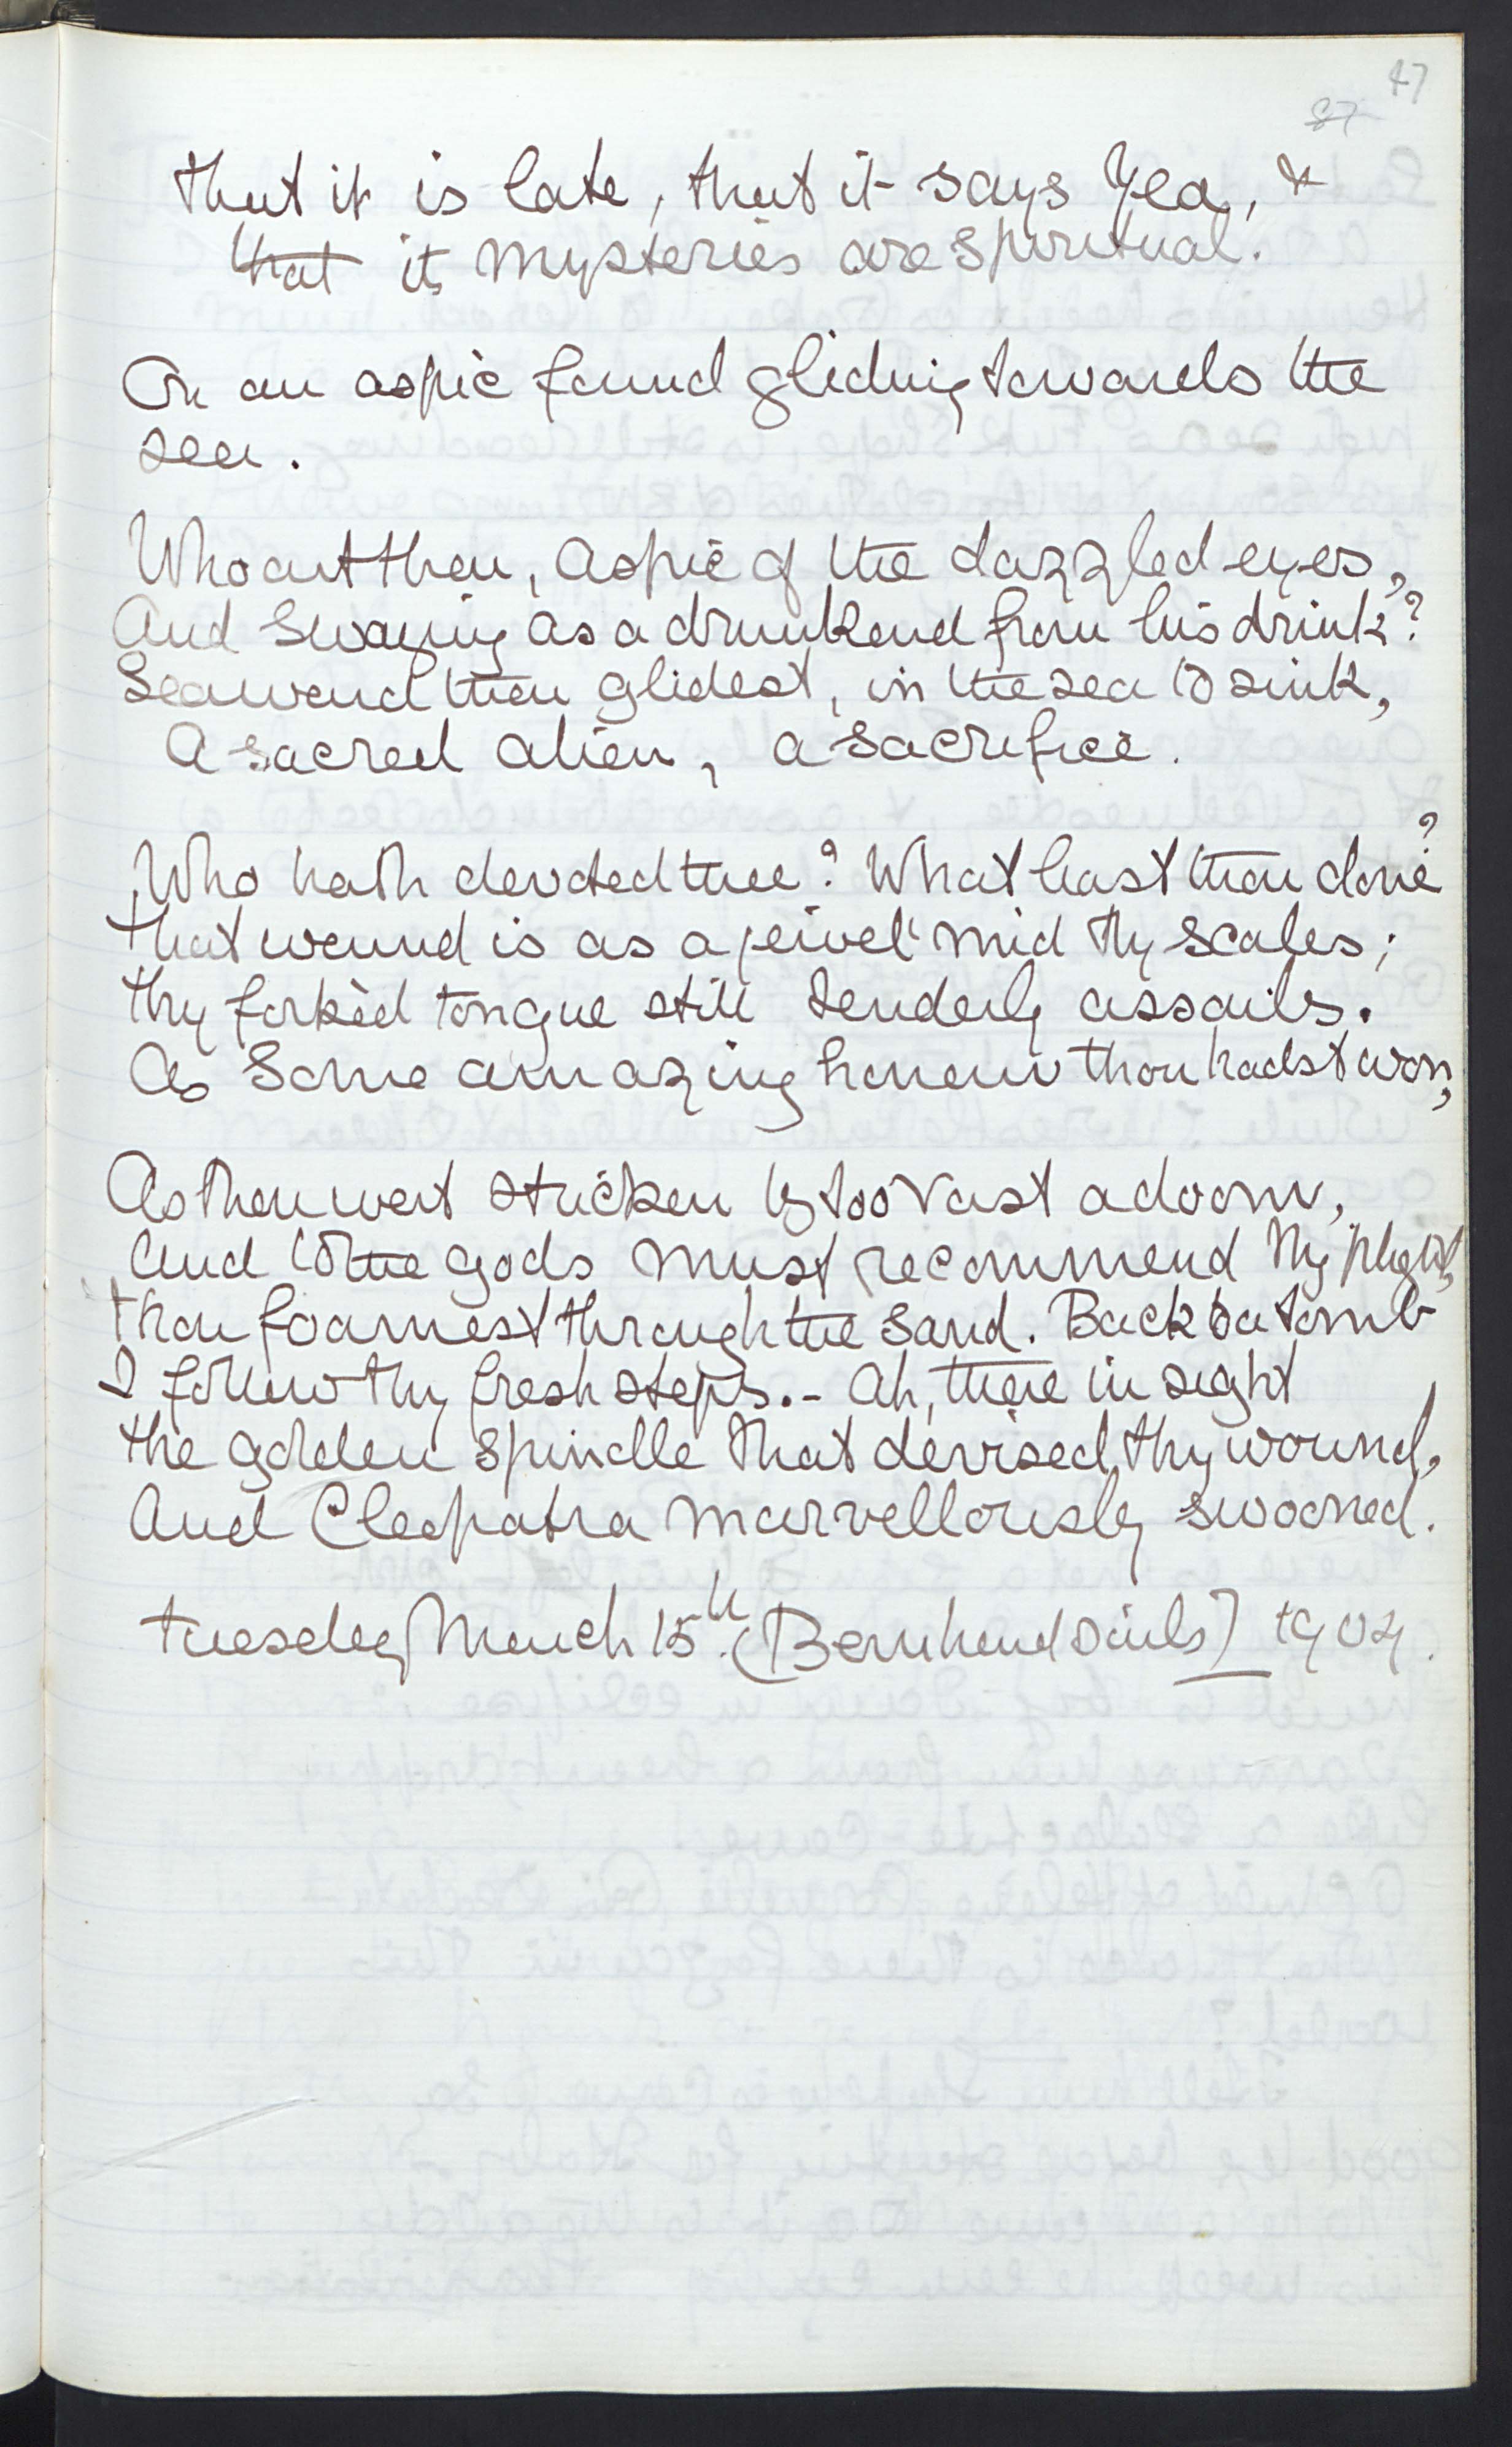 47
87
that it is late, that it says Yea, &
that its mysteries are spiritual.
On an aspic found gliding towards the
sea.
Who art thou, aspic of the dazzled eyes,
And swaying as a drunkard from his drink?
Seaward thou glidest, in the sea to sink,
A sacred alien, a sacrifice.
Who hath devoted thee? What hast thou done?
That wound is as a jewel 'mid thy scales;
Thy forkèd tongue still tenderly assails.
As some amazing honour thou hadst won,
As thou wert stricken by too vast a doom,
And to the gods must recommend thy plight,
Thou foamest through the sand. Back to a tomb
I follow thy fresh steps. - Ah, there in sight
The golden spindle that devised thy wound,
And Cleopatra marvellously swooned.
Tuesday March 15th. (Bernhard sails) 1904.